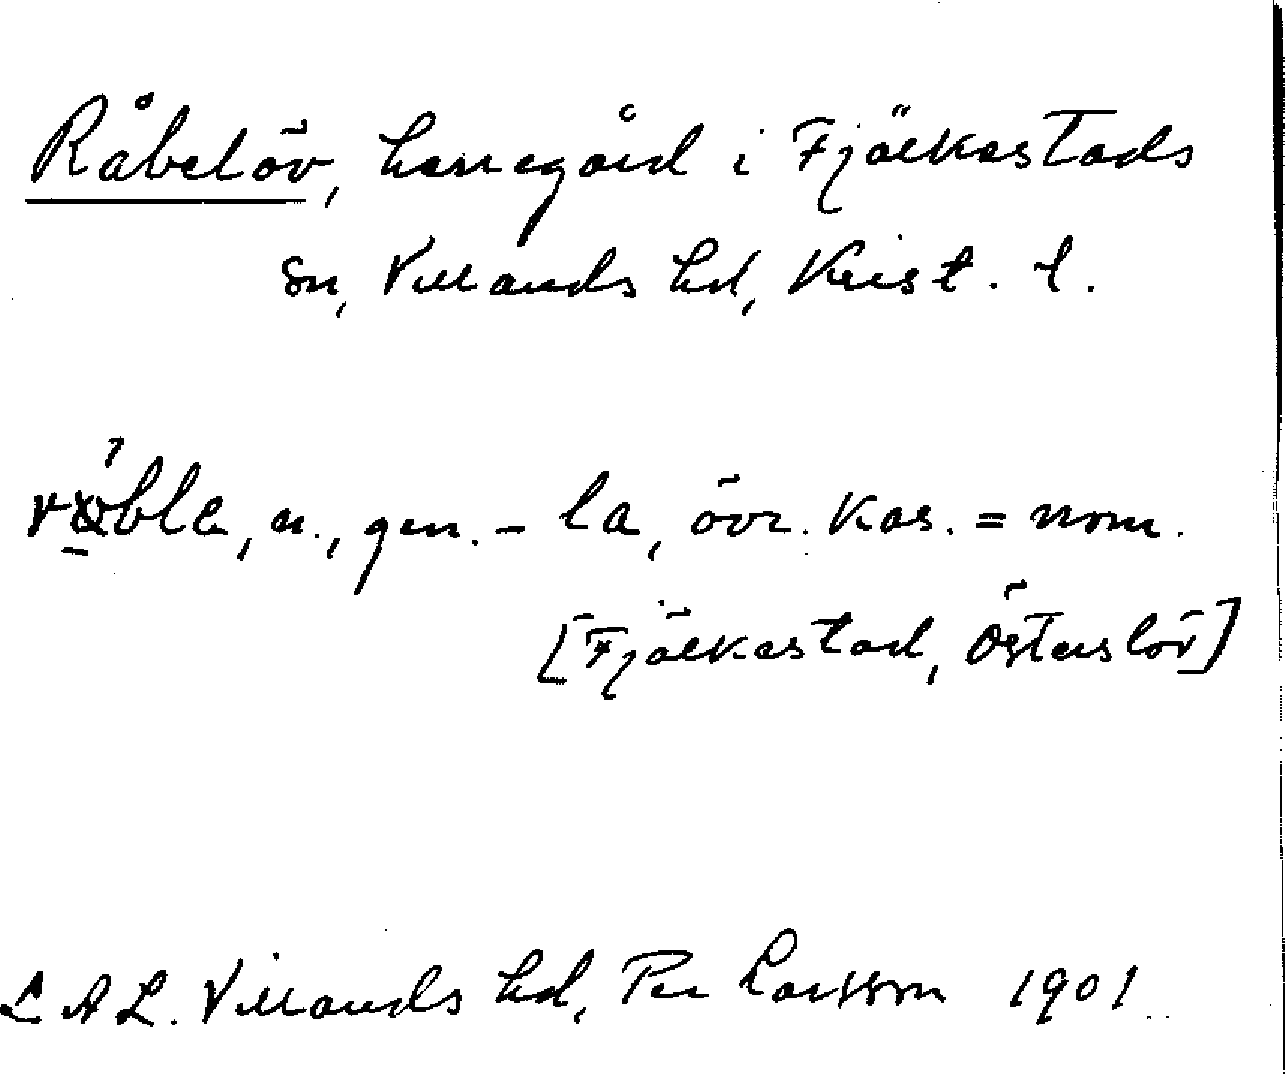 Råbelöv, herregård i Fjälkestads
sn, Villands hd, Krist. l.
n., gen. - la, övr. kas. = nom.
[Fjälkestad, Österslöv]
LAL. Villands hd, Per Larsson 1901